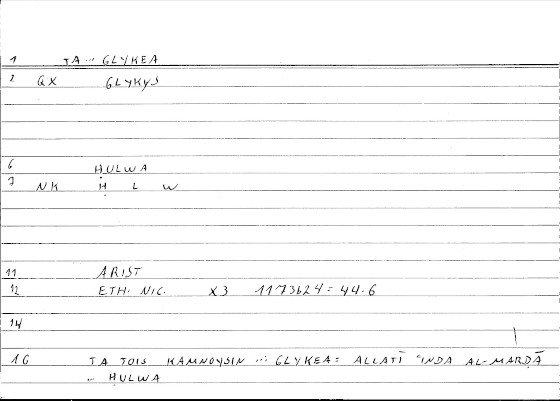 1 TA ... GLYKEA
2 QX GLYKYS
6 ḤULWA
7 NK Ḥ L W
11 ARIST
12 ETH. NIC. X3 1173b24 = 44.6
14
16 TA TOIS KAMNOYSIN ... GLYKEA = ALLATĪ ʿINDA AL-MARḌĀ
.. ḤULWA